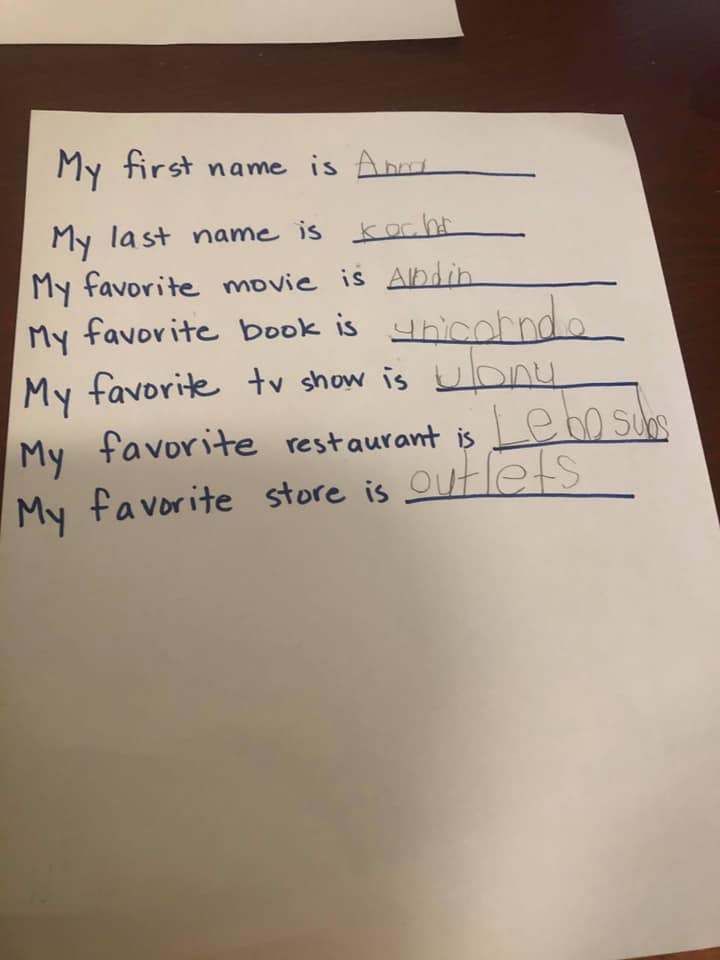 My first name is Anna
My last name is Kochr
My favorite movie is Alddin
My favorite book is unicorndo
My favorite tv show is ulony
My favorite restaurant is Lebo subs
My favorite store is outlets